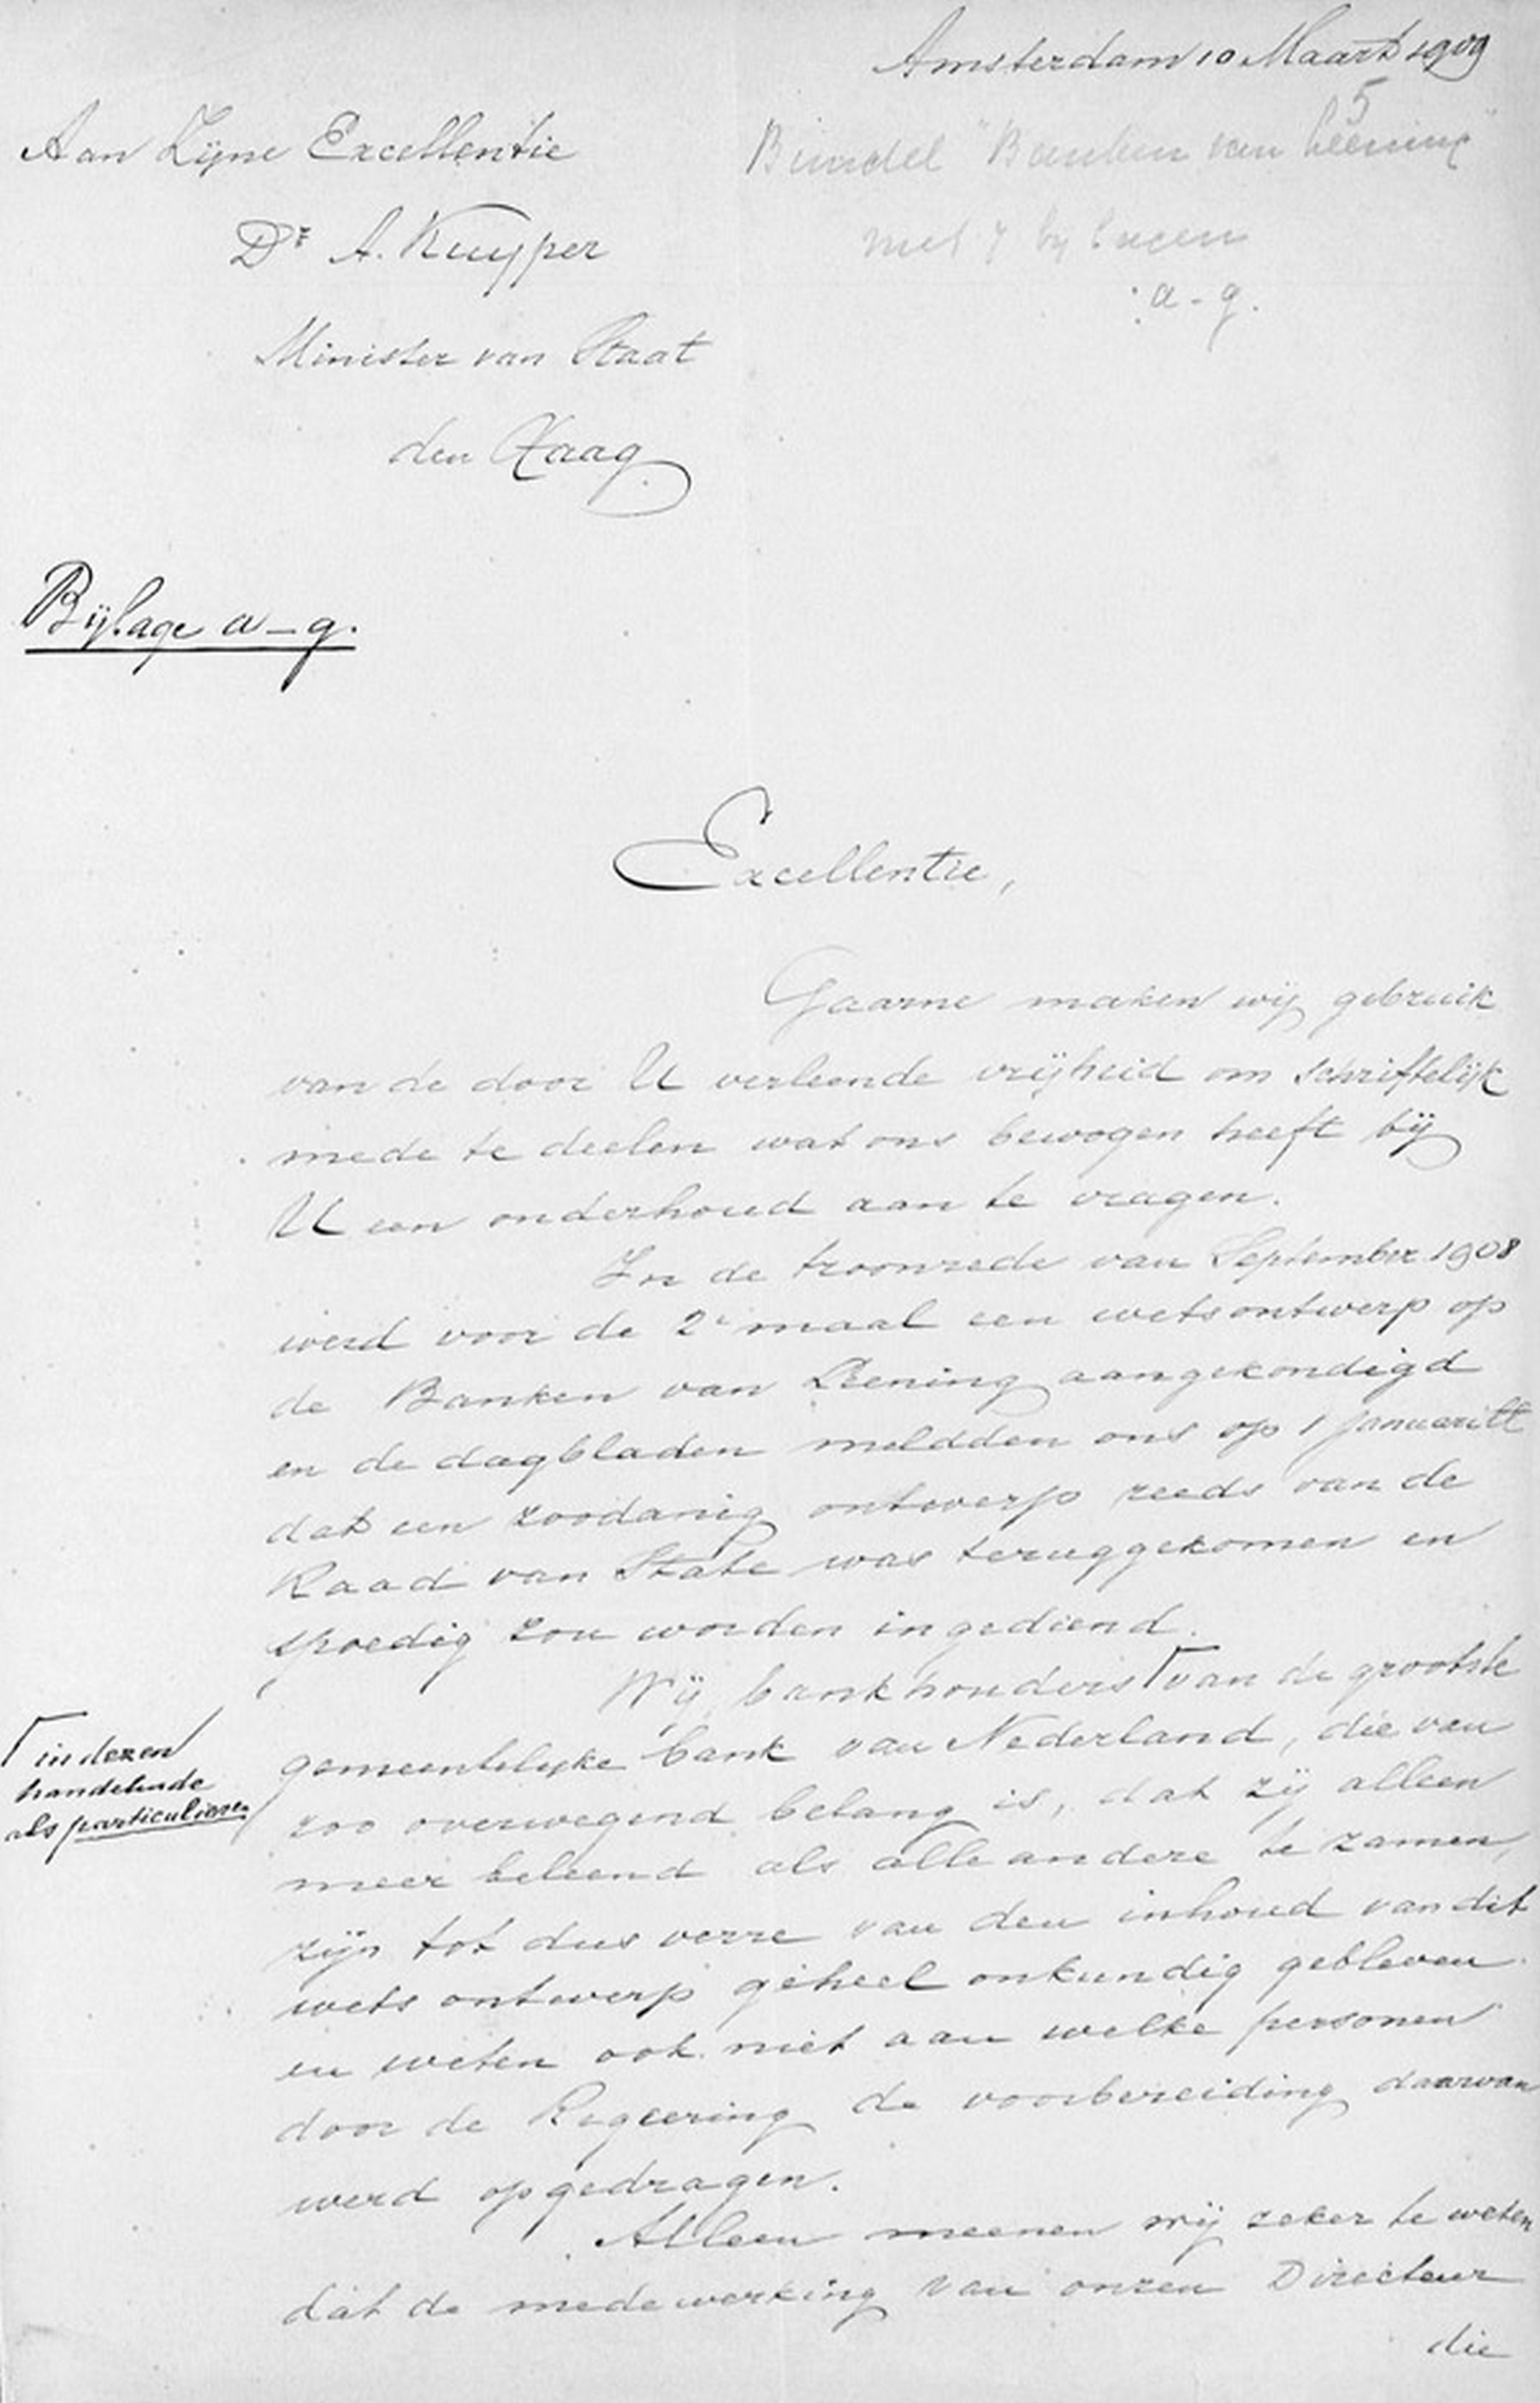 Amsterdam 10 Maart 1909
5
Bundel "Banken van Leening"
met 7 bylagen
a-g.
Aan Zijne Excellentie
Dr A. Kuyper
Minister van Staat
den Haag.
Bijlage a-g.
Excellentie,
Gaarne maken wij gebruik
van de door U verleende vrijheid om schriftelijk
mede te deelen wat ons bewogen heeft bij
U een onderhoud aan te vragen.
In de troonrede van September 1908
werd voor de 2e maal een wetsontwerp op
de Banken van Leening aangekondigd
en de dagbladen meldden ons op 1 Januari ll
dat een zoodanig ontwerp reeds van de
Raad van State was teruggekomen en
spoedig zou worden ingediend.
Wij, bankhouders Γ van de grootste
Γ in dezen
handelende
als particulieren
gemeentelijke bank van Nederland, die van
zoo overwegend belang is, dat zij alleen
meer beleend als alle andere te zamen,
zijn tot dus verre van den inhoud van dit
wets ontwerp geheel onkundig gebleven
en weten ook niet aan welke personen
door de Regeering de voorbereiding daarvan
werd opgedragen.
Alleen meenen wij zeker te weten
dat de medewerking van onzen Directeur
die